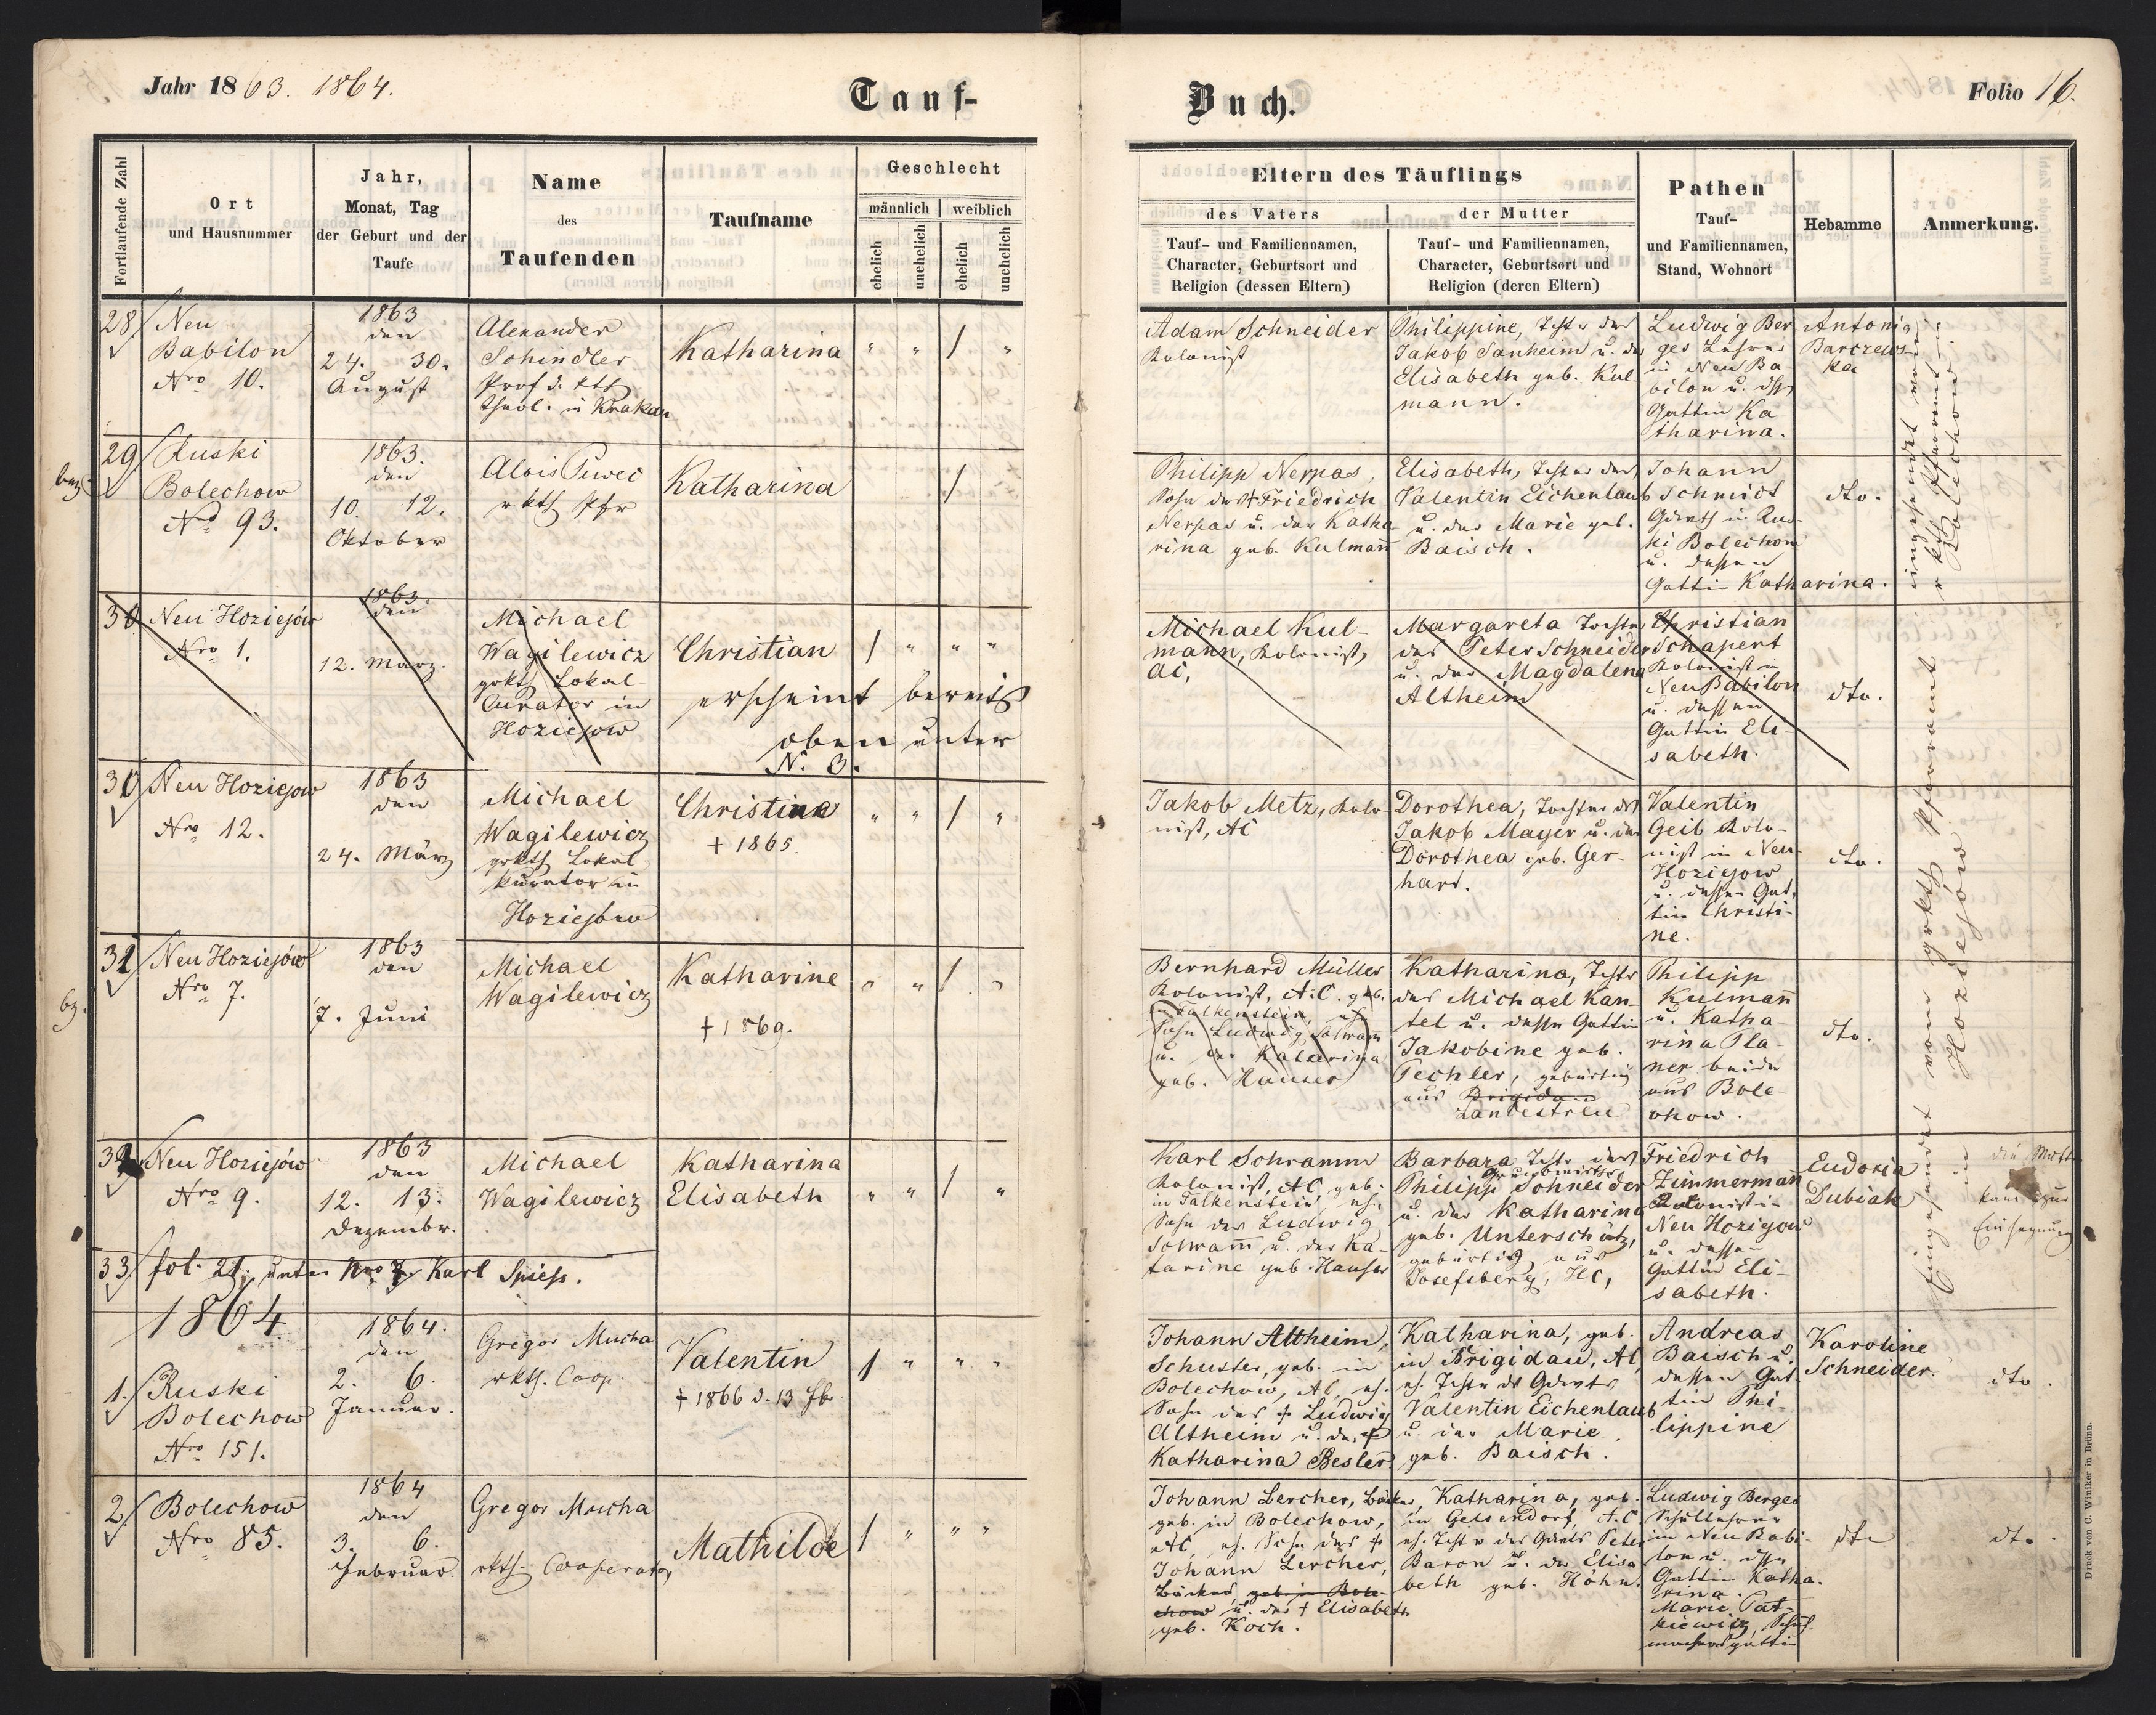 Jahr 1863. 1864.
Tauf-
Buch.
Folio 16.
Fortlaufende Zahl
Ort
und Hausnummer
Jahr,
Monat, Tag
der Geburt und der
Taufe
Name
des
Taufenden
Taufname
Geschlecht
männlich
weiblich
ehelich
unehelich
ehelich
unehelich
Eltern des Täuflings
des Vaters
Tauf- und Familiennamen,
Character, Geburtsort und
Religion (dessen Eltern)
der Mutter
Tauf- und Familiennamen,
Character, Geburtsort und
Religion (deren Eltern)
Pathen
Tauf-
und Familiennamen,
Stand, Wohnort
Hebamme
Anmerkung.
28/
Neu
Babilon
Nro 10.
1863
den
24. 30.
August
Alexander
Schindler
Prof d. rkth
theol. in Krakau
Katharina
" " / "
Adam Schneider
Kolonist
Philippine, Tchtr des
Jakob Sanheim u. der
Elisabeth geb. Kul
mann.
Ludwig Ber
ges Lehrer
in Neu Ba-
bilon u. dssn
Gattin Ka
tharina.
Antonia
Barczews-
ka
29/
Ruski
Bolechow
No 93.
1863.
den
10. 12.
Oktober
Alois Piwec
rkth Pfr
Katharina
/
Philipp Nerpas,
Sohn des † Friedrich
Nerpas u. der Katha
rina geb. Kulmann
Elisabeth, Tchter des
Valentin Eichenlaub
u. der Marie geb.
Baisch.
Johann
Schmidt
Grwth in Rus-
ki Bolechow
u. dessen
Gattin Katharina.
dto.
eingesendet vom
rkth Pfarramt in
Bolechow.
30
Neu Hoziejów
Nro 1.
1863
den
12. März.
Michael
Wagilewicz
grkth Lokal-
Curator in
Hoziejow
Christian
/ " " "
erscheint bereits
oben unter
N. 3.
Michael Kul-
mann, Kolonist,
AC,
Margareta Tochter
des Peter Schneider
u. der Magdalena
Altheim
Christian
Schapert
Kolonist in
Neu Babilon
u. dessen
Gattin Eli-
sabeth.
dto.
30/
Neu Hoziejow
Nro 12.
1863
den
24. März
Michael
Wagilewicz
grkth Lokal
kurator in
Hoziejow
Christina
† 1865.
" " / "
Jakob Metz, Kolo
nist, AC
Dorothea, Tochter des
Jakob Mayer u. der
Dorothea geb. Ger-
hart.
Valentin
Geib Kolo-
nist in Neu-
Hoziejow
u. dessen Gat-
tin Christi-
ne.
dto.
31/
Neu Hoziejów
Nro 7.
1863
den
7. Juni
Michael
Wagilewicz
Katharine
† 1869.
" " / "
Bernhard Müller
Kolonist, A.C. geb.
in Falkenstein, eh
Sohn Ludwig Schramm
u. der Katarina
geb. Hauser
Katharina, Tchtr
des Michael Kan-
tel u. dessen Gattin
Jakobine geb.
Pechler, gebürtig
aus Brigidau
Landestreu
Philipp
Kulmann
u. Katha-
rina Pla-
ner beide
aus Bole-
chow.
dto.
Eingesendet vom grkth Pfarramt in
Hoziejów
32/
Neu Hoziejów
Nro 9.
1863
den
12. 13.
Dezembr.
Michael
Wagilewicz
Katharina
Elisabeth
" " / "
Karl Schramm
Kolonist, AC geb.
in Falkenstein, eh.
Sohn des Ludwig
Schramm u. der Ka-
tarine geb. Hauser
Barbara Tchtr des
Philipp Schneider
u. der Katharina
geb. Unterschütz,
gebürtig aus
Josefsberg, HC,
Friedrich
Zimmermann
Kolonist in
Neu Hoziejow
u. dessen
Gattin Eli-
sabeth.
Eudoxia
Dubiak
die Mutter
kam zur
Einsegnung
33/
fol. 21, unter Nro 7. Karl Spiess.
1864
1./
Ruski
Bolechow
Nro 151.
1864.
den
2. 6.
Januar.
Gregor Mucha
rkth. Coop.
Valentin
† 1866 d. 13
1 " " "
Johann Altheim,
Schuster, geb. in
Bolechow, AC, eh.
Sohn des † Ludwig
Altheim u. der †
Katharina Besler
Katharina, geb.
in Brigidau, AC,
eh. Tchtr ds Grdwts
Valentin Eichenlaub
u. der Marie
geb. Baisch.
Andreas
Baisch u.
dessen Gat
tin Phi-
lippine
Karoline
Schneider.
dto.
2./
Bolechow
Nro 85.
1864
den
3. 6.
Februar.
Gregor Mucha
rkth. Cooperator
Mathilde
1 " " "
Johann Lercher, Bäcker,
geb. in Bolechow,
AC, eh. Sohn des †
Johann Lercher,
Bäcker, geb. in Bole-
chow u. der † Elisabeth
geb. Koch.
Katharina, geb.
in Gelsendorf, A.C.
eh. Tchtr des Grdwts Peter
Baron u. der Elisa
beth geb. Höhn.
Ludwig Berges
Schullehrer
in Neu Babi-
lon u. dssn
Gattin Katha-
rina.
Marie Pat-
kiewicz, Schuh-
machersgattin
dto
dto.
Druck von C. Winiker in Brünn.